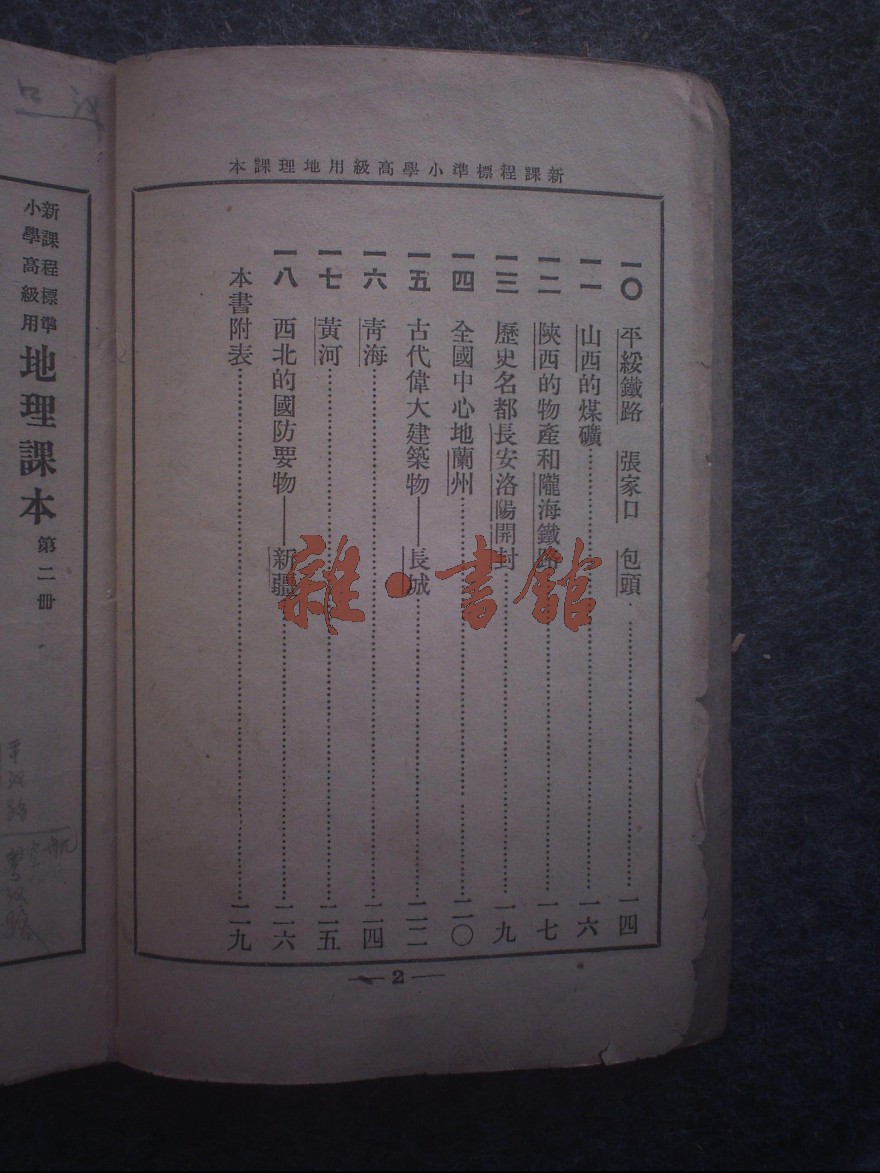 新課程標準小學高級用地理課本
一〇 平綏鐵路 張家口 包頭 一四
一一 山西的煤礦 一六
一二 陝西的物產和隴海鐵路 一七
一三 歷史名都長安洛陽開封 一九
一四 全國中心地蘭州 二〇
一五 古代偉大建築物——長城 二二
一六 青海 二四
一七 黃河 二五
一八 西北的國防要物——新疆 二六
本書附表 二九
— 2 —
新課程標準
小學高級用
地理課本 第二冊
雜·書館